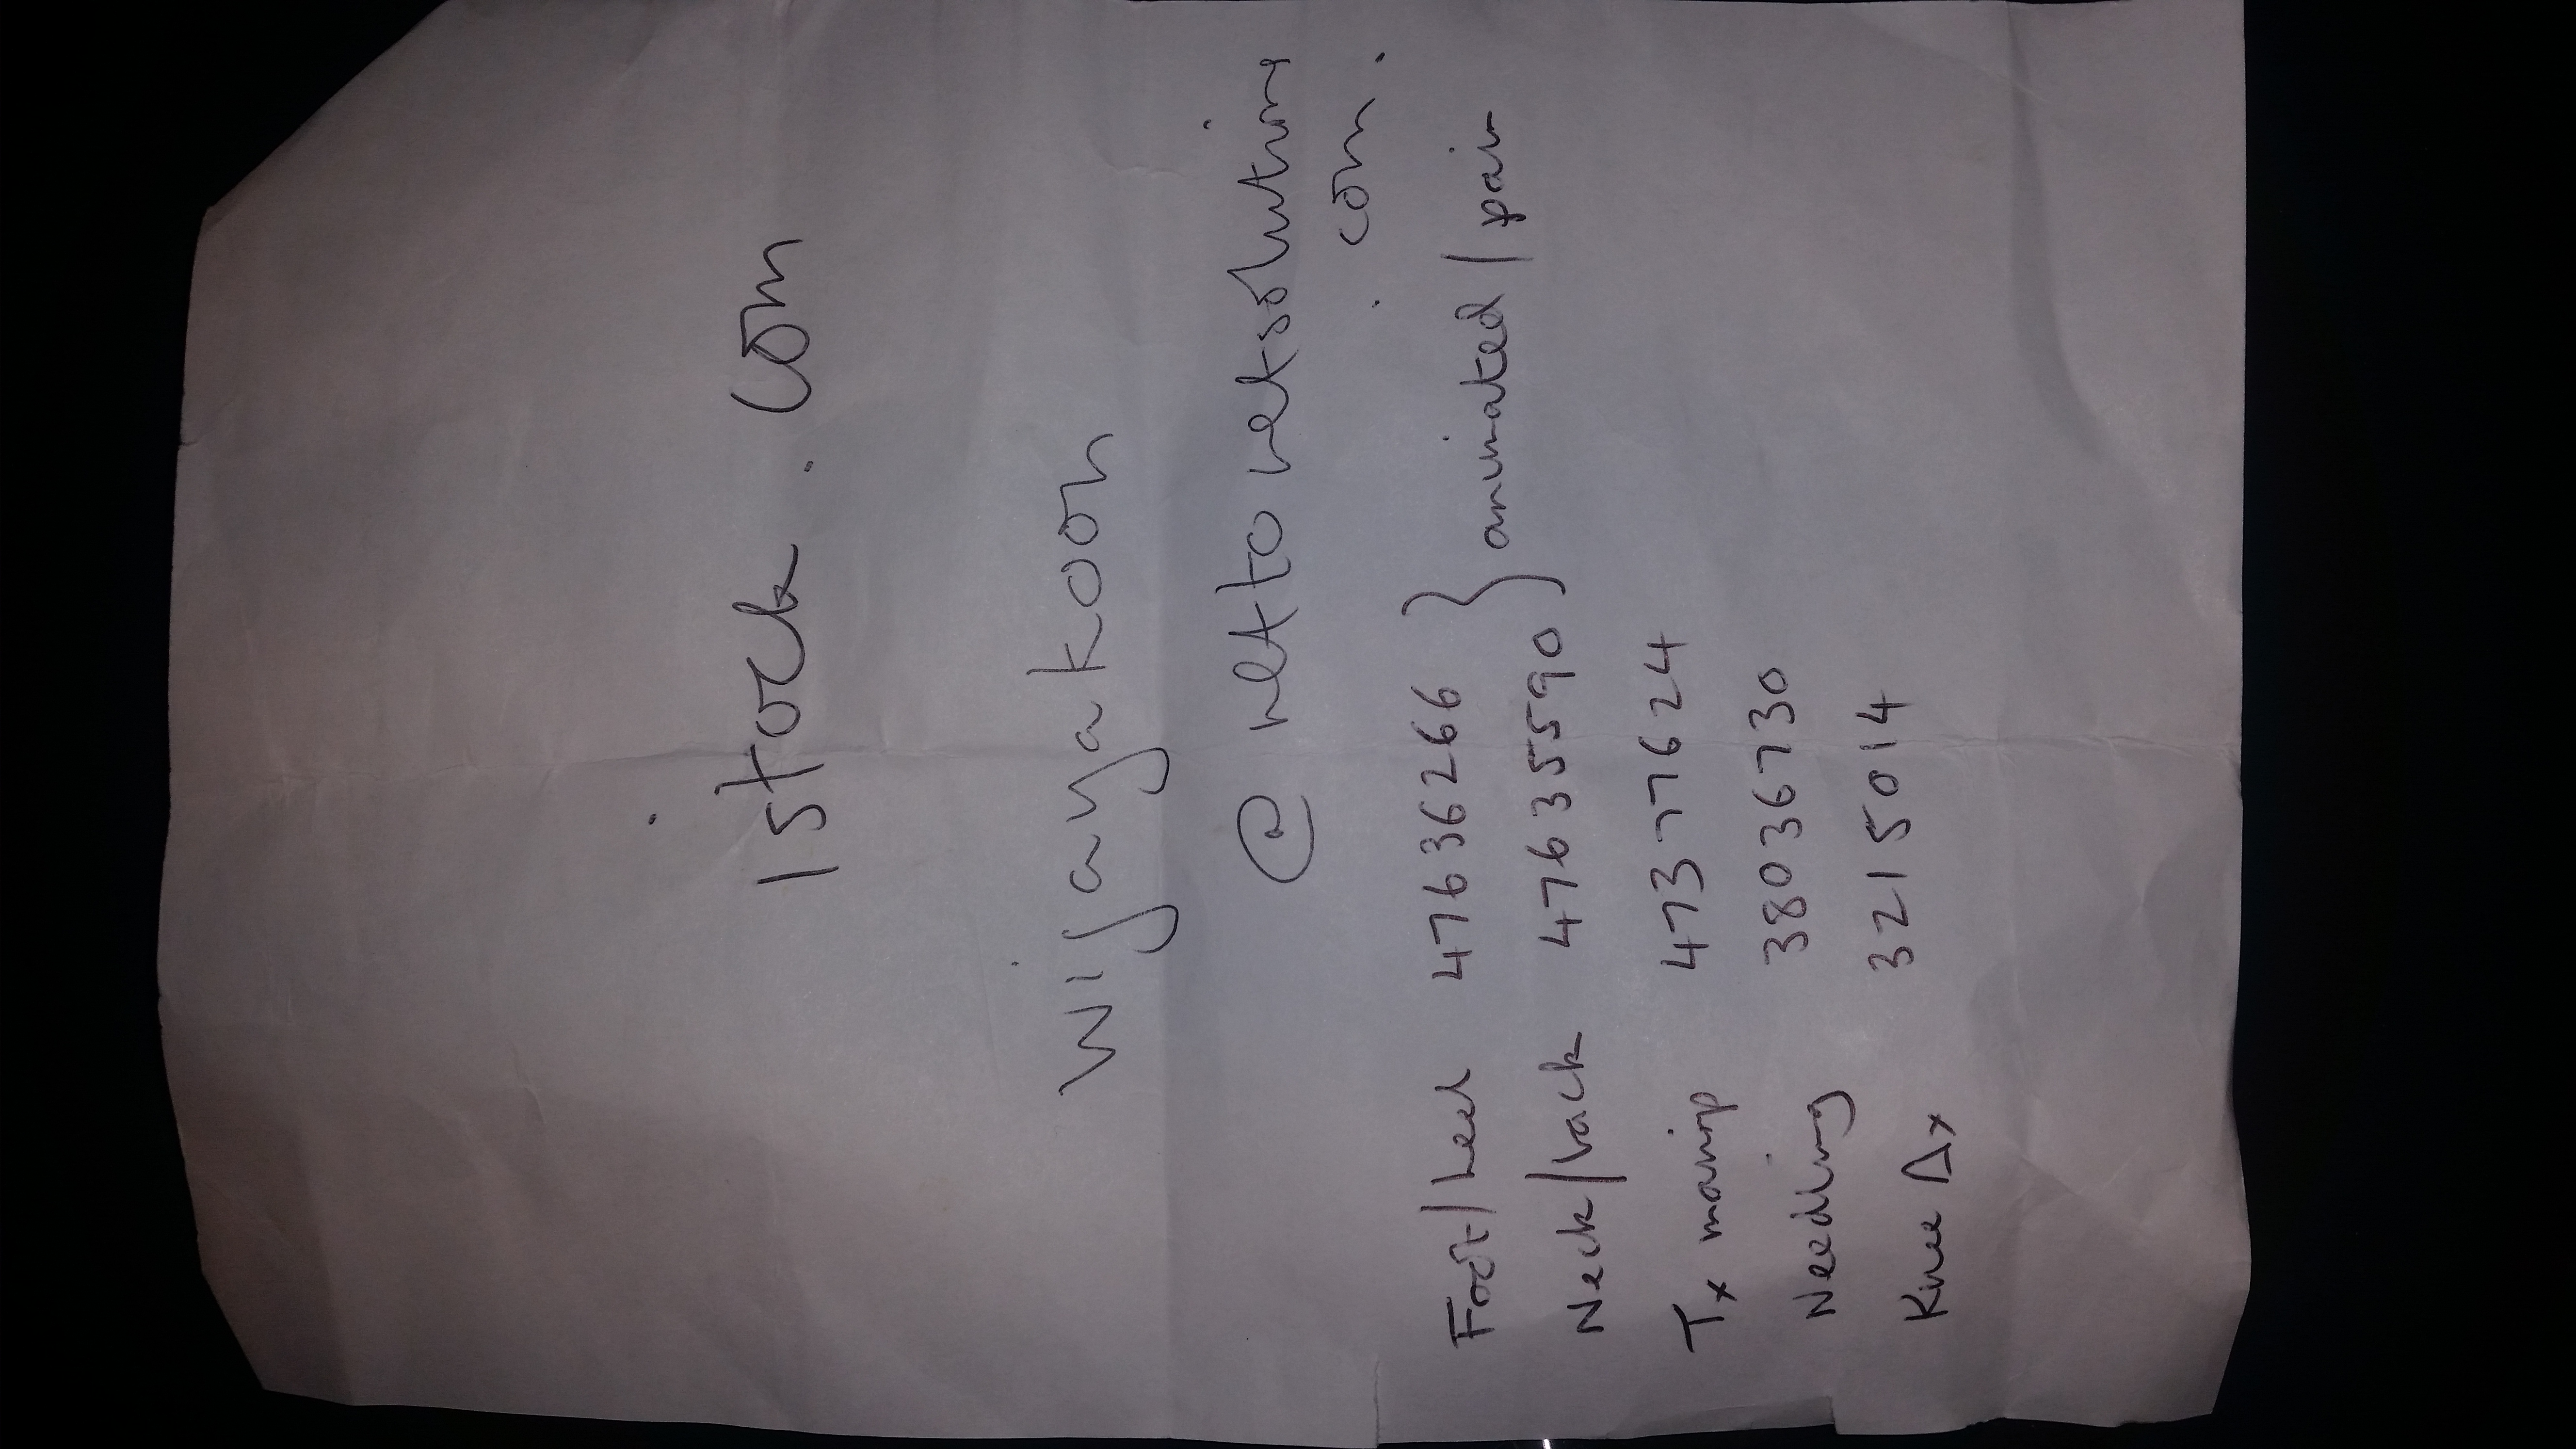 istock.com
wijayakoon
@ nettonetsolutions
.com.
Foot/heel 47636266 } animated/pain
Neck/back 47635590
Tx manip 47377624
Needling 38036730
Knee Δx 3215014